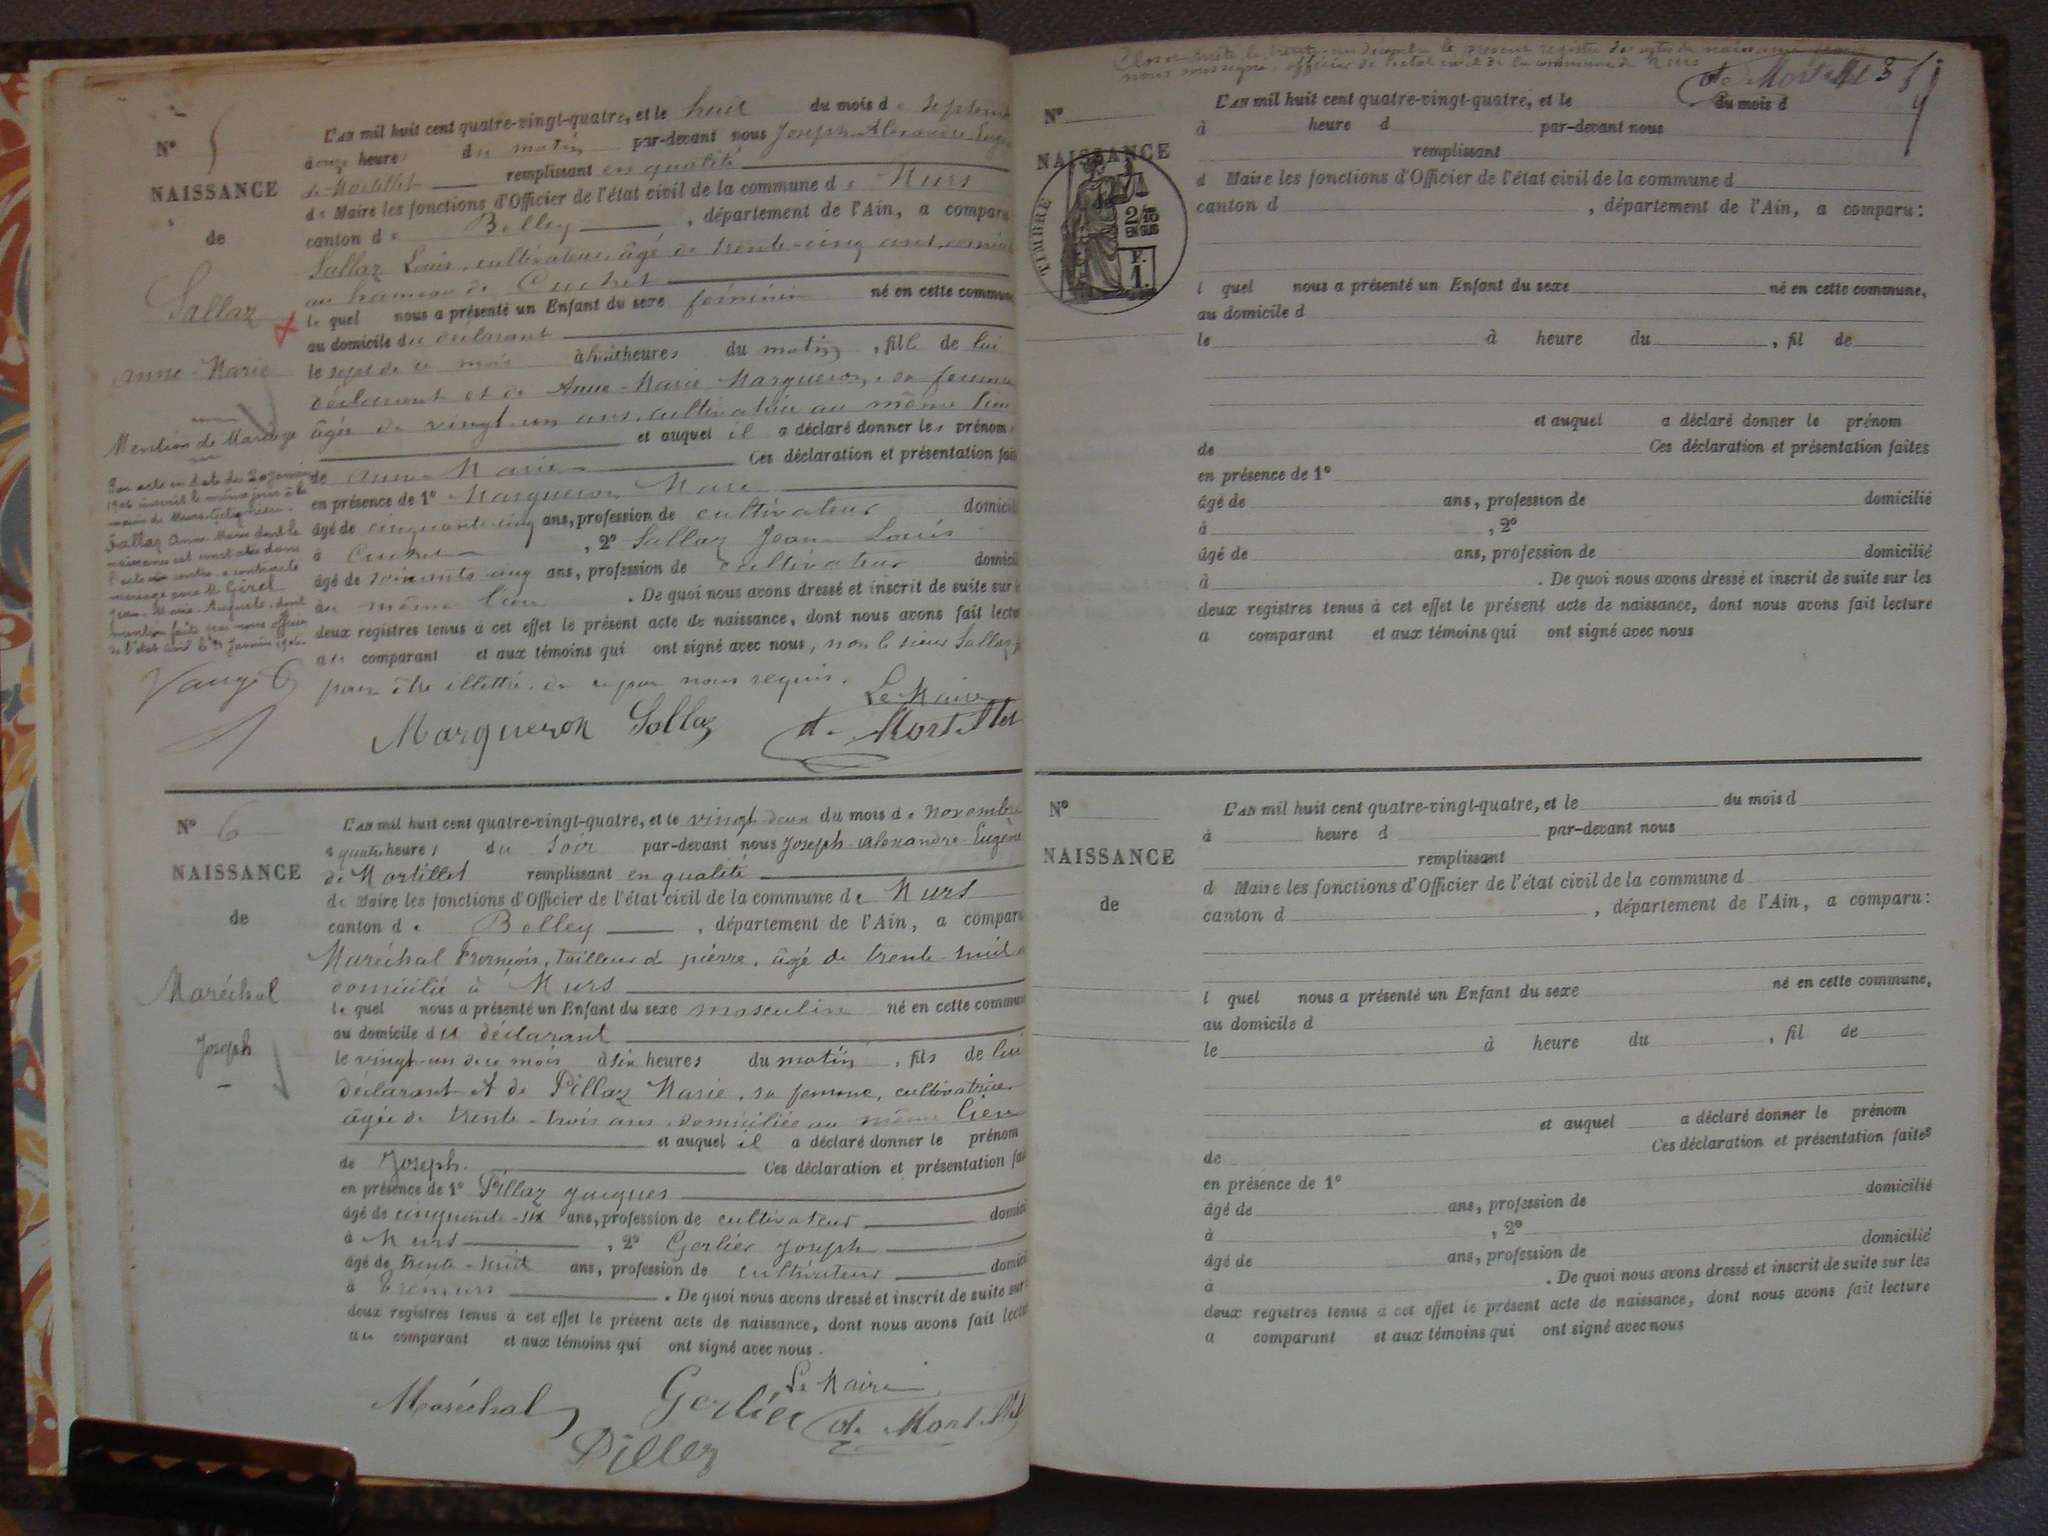 N° 5
NAISSANCE
de
Sallaz
Anne-Marie
Mention de Mariage
Par acte en date du 20 janvier
1906 inscrit le même jour à la
mairie de Murs-Géligneux
Sallaz Anne-Marie dont la
naissance est constatée dans
l'acte ci-contre a contracté
mariage avec M. Girel
Jean-Marie-Auguste, dont
mention faite par nous officier
de l'état civil le Janvier 1906.
L'AN mil huit cent quatre-vingt-quatre, et le huit du mois de Septemb
à onze heures du matin par-devant nous Joseph-Alexandre-Eugè
de Mortillet remplissant en qualité
de Maire les fonctions d'Officier de l'état civil de la commune de Murs
canton de Belley, département de l'Ain, a comparu
Sallaz Louis, cultivateur, âgé de trente-cinq ans, domicil
au hameau de Cuchet
lequel nous a présenté un Enfant du sexe féminin né en cette commune,
au domicile du déclarant
le sept de ce mois à huit heures du matin, fille de lui
déclarant et de Anne-Marie Margueron, sa femme
âgée de vingt-un ans, cultivatrice au même lieu
et auquel il a déclaré donner les prénoms
de Anne Marie Ces déclaration et présentation fait
en présence de 1° Margueron Marc
âgé de cinquante-cinq ans, profession de cultivateur domicili
à Cuchet, 2° Sallaz Jean Louis
âgé de soixante-cinq ans, profession de cultivateur domicili
au même lieu. De quoi nous avons dressé et inscrit de suite sur le
deux registres tenus à cet effet le présent acte de naissance, dont nous avons fait lectu
au comparant et aux témoins qui ont signé avec nous, non le sieur Sallaz
pour être illettré, de ce par nous requis.
Le Maire
Margueron Sallaz de Mortillet
N° 6
NAISSANCE
de
Maréchal
Joseph
L'AN mil huit cent quatre-vingt-quatre, et le vingt deux du mois de novembre
à quatre heures du soir par-devant nous Joseph-Alexandre-Eugène
de Mortillet remplissant en qualité
de Maire les fonctions d'Officier de l'état civil de la commune de Murs
canton de Belley, département de l'Ain, a comparu
Maréchal François, tailleur de pierre, âgé de trente-huit a
domicilié à Murs
lequel nous a présenté un Enfant du sexe masculin né en cette commune
au domicile du déclarant
le vingt-un de ce mois à six heures du matin, fils de lui
déclarant et de Pillaz Marie, sa femme, cultivatrice
âgée de trente-trois ans domiciliée au même lieu
et auquel il a déclaré donner le prénom
de Joseph. Ces déclaration et présentation fai
en présence de 1° Pillaz Jacques
âgé de cinquante-six ans, profession de cultivateur domici
à Murs, 2° Gerlier Joseph
âgé de trente-huit ans, profession de cultivateur domici
à Crémurs. De quoi nous avons dressé et inscrit de suite sur
deux registres tenus à cet effet le présent acte de naissance, dont nous avons fait lectu
au comparant et aux témoins qui ont signé avec nous.
Le Maire
Maréchal Gerlier de Mortillet
Pillaz
Clos et arrêté le trente-un décembre le présent registre des actes de naissance par
nous soussigné, officier de l'état civil de la commune de Murs
de Mortillet
N°
NAISSANCE
TIMBRE
2/10
EN SUS
F.
1.
L'AN mil huit cent quatre-vingt-quatre, et le du mois d
à heure d par-devant nous
remplissant
d Maire les fonctions d'Officier de l'état civil de la commune d
canton d , département de l'Ain, a comparu :
l quel nous a présenté un Enfant du sexe né en cette commune,
au domicile d
le à heure du , fil de
et auquel a déclaré donner le prénom
de Ces déclaration et présentation faites
en présence de 1°
âgé de ans, profession de domicilié
à , 2°
âgé de ans, profession de domicilié
à . De quoi nous avons dressé et inscrit de suite sur les
deux registres tenus à cet effet le présent acte de naissance, dont nous avons fait lecture
a comparant et aux témoins qui ont signé avec nous
N°
NAISSANCE
de
L'AN mil huit cent quatre-vingt-quatre, et le du mois d
à heure d par-devant nous
remplissant
d Maire les fonctions d'Officier de l'état civil de la commune d
canton d , département de l'Ain, a comparu :
l quel nous a présenté un Enfant du sexe né en cette commune,
au domicile d
le à heure du , fil de
et auquel a déclaré donner le prénom
de Ces déclaration et présentation faites
en présence de 1°
âgé de ans, profession de domicilié
à , 2°
âgé de ans, profession de domicilié
à . De quoi nous avons dressé et inscrit de suite sur les
deux registres tenus à cet effet le présent acte de naissance, dont nous avons fait lecture
a comparant et aux témoins qui ont signé avec nous